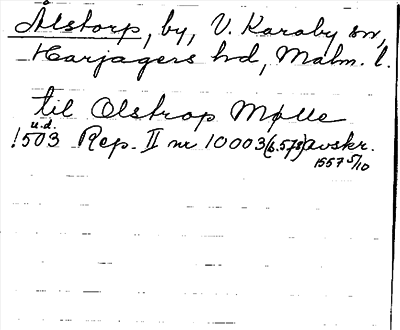 Ålstorp, by, V. Karaby sn,
Harjagers hd, Malm. l.
til Olstrop Mølle
u.d.
1503 Rep. II nr 10003 (s. 578) avskr.
1557 5/10